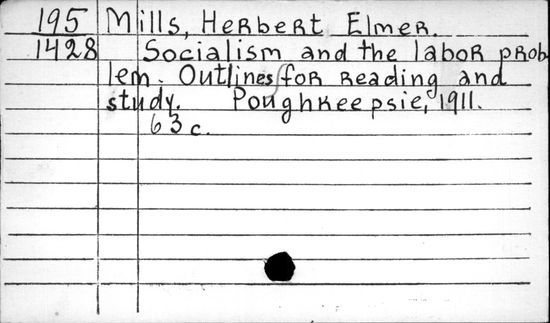 195 Mills, Herbert Elmer.
1428 Socialism and the labor prob
lem. Outlines for reading and
study. Poughkeepsie, 1911.
63 c.